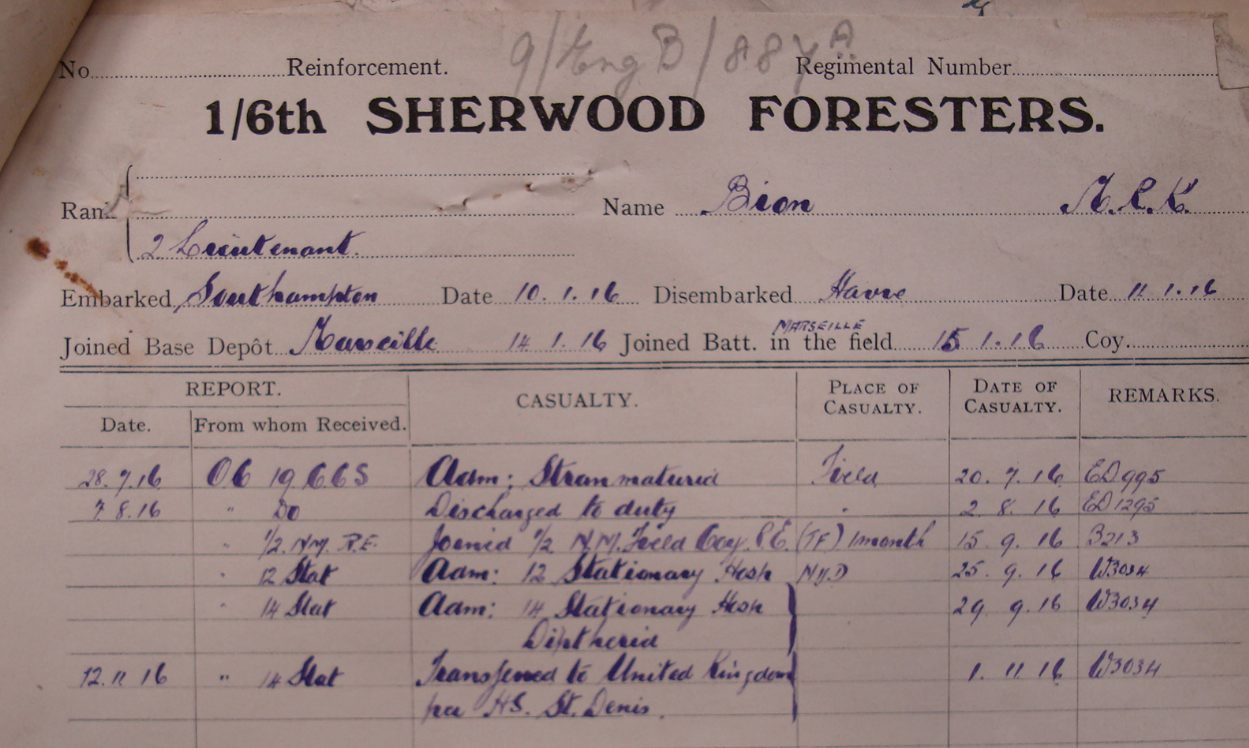 9/Eng B/887A
No. Reinforcement. Regimental Number
1/6th SHERWOOD FORESTERS.
Rank Name Bion R.E.K.
2 Lieutenant.
Embarked Southampton Date 10.1.16 Disembarked Havre Date 11.1.16
MARSEILLE
Joined Base Depôt Marseille 14.1.16 Joined Batt. in the field 15.1.16 Coy.
REPORT. CASUALTY. PLACE OF CASUALTY. DATE OF CASUALTY. REMARKS.
Date. From whom Received.
28.7.16 OC 19 CCS Adm: Field 20.7.16 ED995
7.8.16 " Do Discharged to duty " 2.8.16 ED1295
" 1/2 N.M. R.E. Joined 1/2 N.M. Field Coy. R.E. (TF) 1 month 15.9.16 B213
" 12 Stat Adm: 12 Stationary Hosp NYD 25.9.16 W3034
" 14 Stat Adm: 14 Stationary Hosp 29.9.16 W3034
Diptheria
12.11.16 " 14 Stat Transferred to United Kingdom 1.11.16 W3034
per HS. St. Denis.